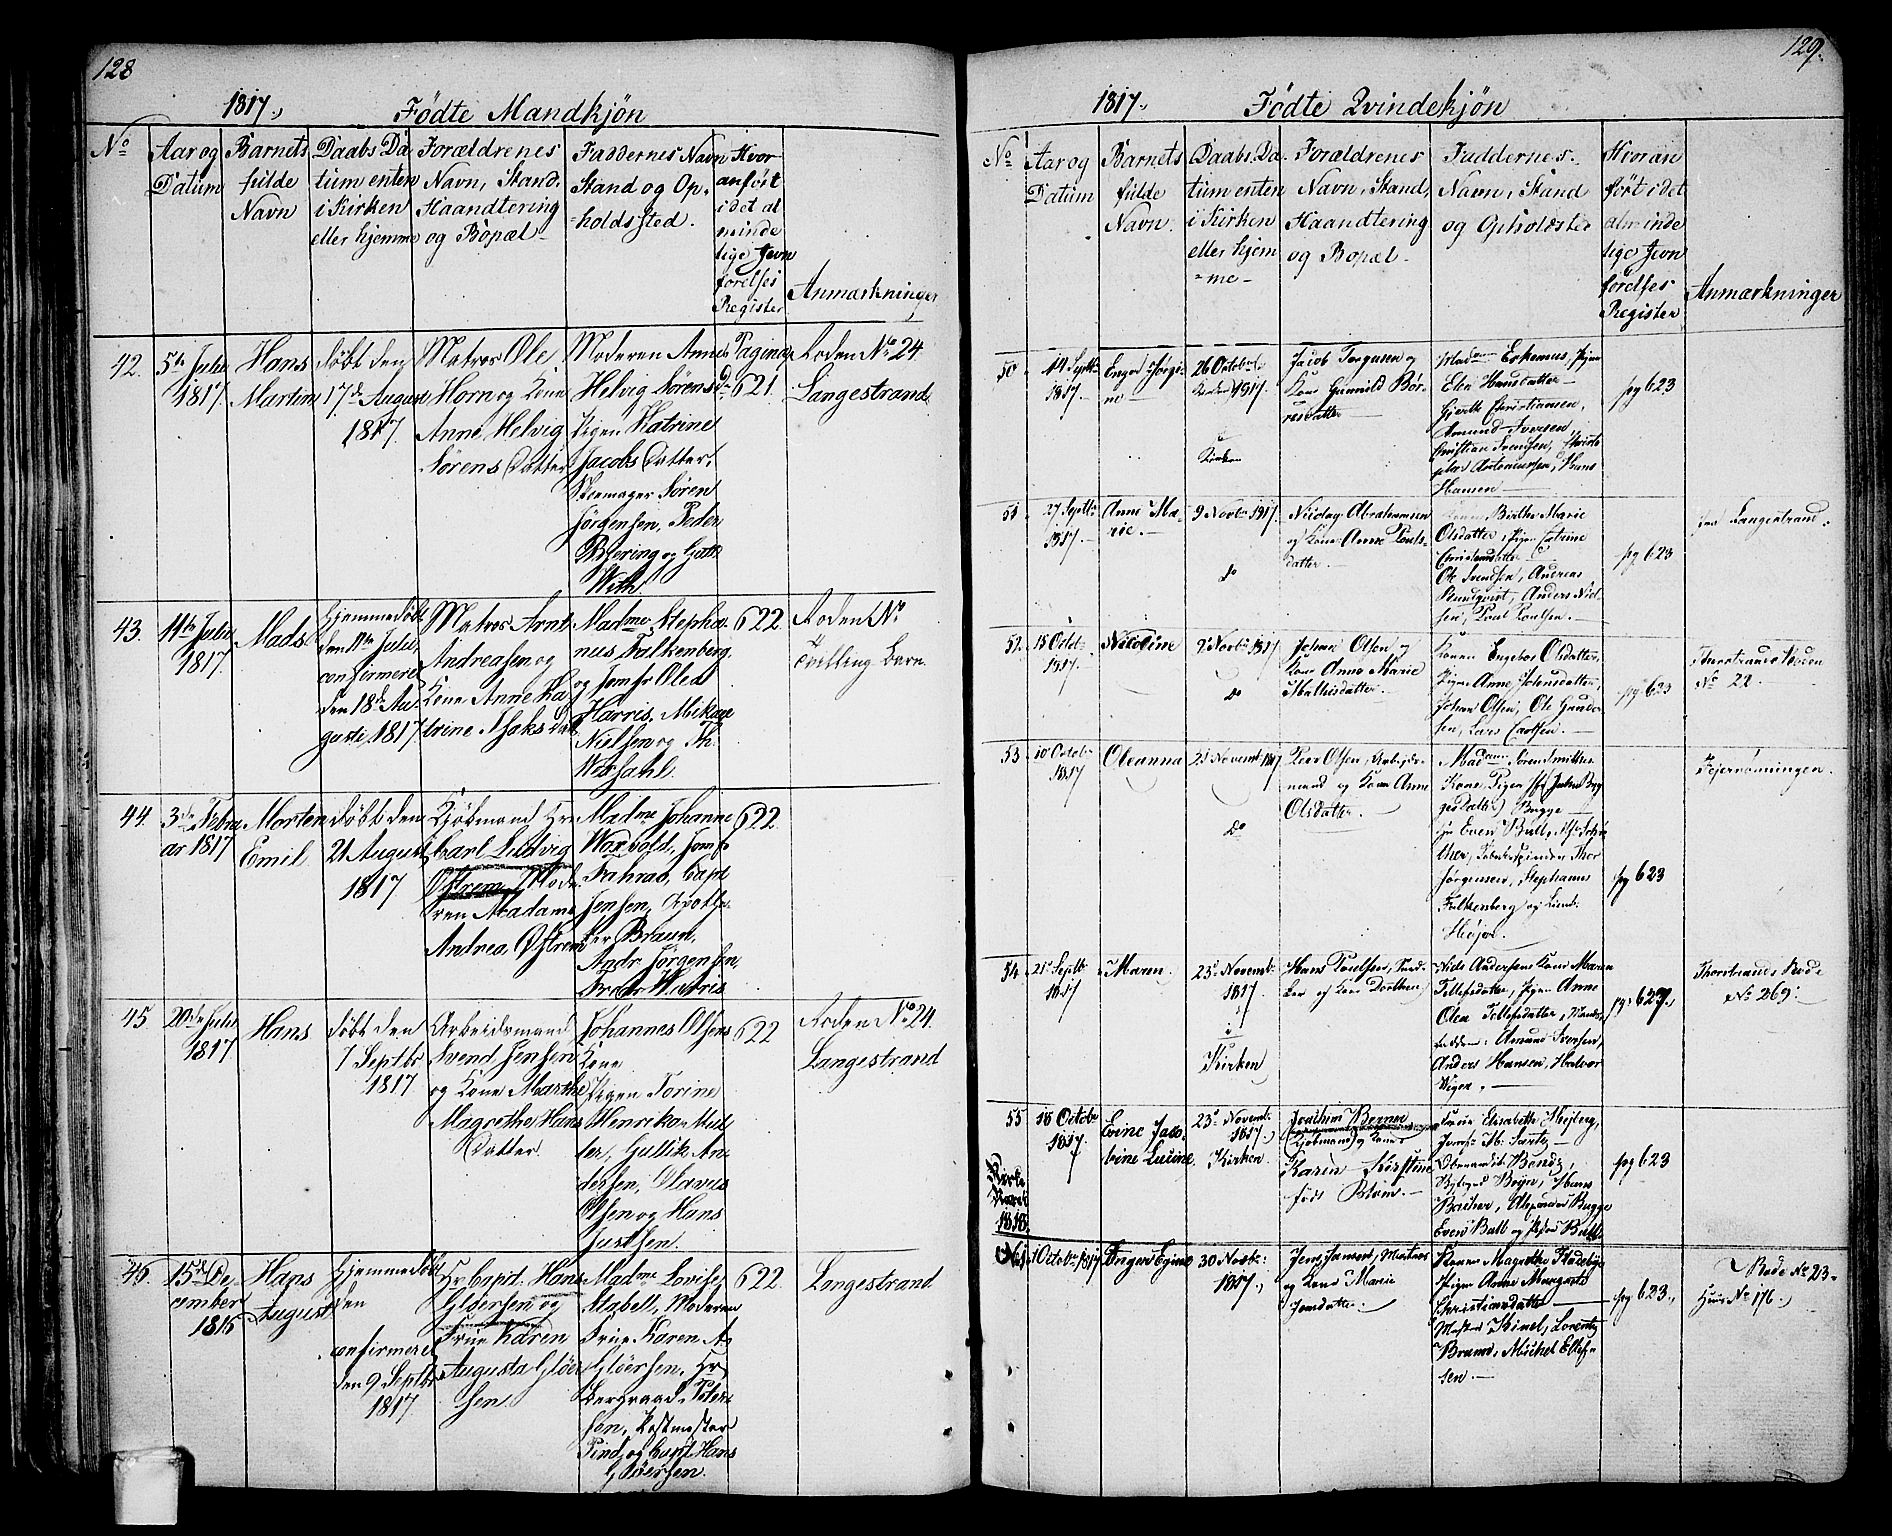 128
1817.
Fødte Mandkjøn
No
Aar og
Datum
Barnets
fulde
Navn
Daabs Da
tum enten
i Kirken
eller hjemme
Forældrenes
Navn, Stand,
Haandtering
og Bopæl
Faddernes Navn
Stand og Op-
holdssted.
Hvor
anført
i det al
minde
lige Jevn
førelses
Register
Anmærkninger
42.
5te Julii
1817.
Hans
Martin
døbt den
17de August
1817.
Matros Ole
Horn og Kone
Anne Helvig
Sørens Datter
Moderen Anne
Helvig Sørens Dr
Pigen Katrine
Jacobs Datter,
Skomager Søren
Jørgensen, Peder
Bjering og
With
Pagina
621.
Roden No 24
Langestrand
43.
11te Julii
1817.
Mads
Hjemmedøbt
den 11te Julii,
confirmeret
den 18de Au-
gusti, 1817
Matros Arnt
Andreasen og
Kone Anne Ka
trine Isaks Datt
Madme Stepha-
nus Falkenberg
og Jomfr Olea
Harris, Mikael
Nielsen og Th.
622.
Roden No
Tvilling Barn.
44.
3de Febru
ar 1817
Morten
Emil
døbt den
21 August
1817
Kjøbmand Hr
Carl Ludvig
Østrem, Mode-
ren Madame
Andrea Østrem
Madme Johanne
Waxvold, Jomfr
Capt
Jensen,
ker Braun,
Andr Jørgensen,
622.
45
20de Julii
1817
Hans
døbt den
7 Septbr
1817
Arbeidsmand
Svend Jensen
og Kone Marthe
Magrethe Hans
Datter.
Johannes Olsens
Kone
Pigen Torine
Henrika Mul-
ler, Gullik An-
dersen, Olavus
Olsen og Hans
Justsen.
622
Roden No 24.
Langestrand
46.
15de De-
cember
1816
Hans
August
Hjemmedøbt
den
confirmeret
den 9 Septbr
1817
Hr Capt. Hans
Gløersen og
Frue Karen
Augusta Gløer
sen.
Madme Lovise
Stabell, Moderen
Frue Karen A.
Gløersen, Hr
Bergraad Peter-
sen, Postmester
Pind, og Capt Hans
Gløersen.
622.
Langestrand
129.
1817.
Fødte Qvindekjøn
No
Aar og
Datum
Barnets
fulde
Navn.
Daabs Da-
tum enten
i Kirken
eller hjem
=me-
Forældrenes
Navn, Stand,
Haandtering
og Bopæl-
Faddernes
Navn, Stand
og Opholdsted
Hvor an
ført i det
alminde
lige Jevn
førelses
Register
Anmærkninger
50
14 Septbr
1817.
Inger Jørgi-
ne
26 Octobr
1817.
i
Kirken
Jacob Torgusen og
Kone Gunnild Bør-
resdatter
Madame Eskemus, Pigen
Elen Hansdatter
Gjerth Christiansen,
Amund Iversen,
Christian Svendsen, Christo
pher Antoniussen, Hans
Hansen
pg 623
51
27 Septbr
1817.
Anne Ma-
rie.
9 Novbr 1817
do
Nicolay Abrahamsen
og Kone Anne Pouls-
datter.
Birthe Marie
Olsdatter, Pigen Catrine
Christensdatter
Ole Svendsen, Andreas
Rundqvist, Anders Niel
sen, Poul Poulsen.
pg 623
Langestrand
52.
18 Octbr
1817.
Nicoline
9 Novbr 1817
do
Johan Olsen og
Kone Anne Marie
Mathisdatter.
Konen Engebor Olsdatter,
Pigen Anne Johansdatter,
Johan Olsen, Ole Gunder
sen, Lars Carlsen.
pg 623
Thorstrands Roden
No 22.
53
10 Octobr
1817
Oleanna
21 Novembr 1817
do
Peer Olsen, Arbeids-
mand og Kone Anne
Olsdatter.
Madame
Kone, Pigen
Bugge
Hr Even Bull,
Thor
Jørgensen, Stephanus
Falkenberg og
Højer.
pg 623
Fejerrønningen.
54
21 Septbr
1817
Maren
23de Novembr
1817.
i
Kirken
Hans Poulsen,
og Kone Dorthea
Nils Andersens Kone Maren
Tollefsdatter, Pigen Anne
Olea Tollefsdatter,
Amund Iversen,
Anders Hansen, Halvor
Vigen.
pg. 627.
Thorstrands Rode
No 269.
55
18 Octobr
1817.
Evine Jaco-
bine Lucine
23de Novembr
1817.
Kirken.
Joachim Berner
Kjøbmand og Kone
Karen Kirstine
født Blom.
Frue Elisabeth Hejberg,
Jomfr M. Sartz
Bergraad Bøije, Hans
Backer, Alexander Bugge
Even Bull og Peder Bull
pg 623
Kirke
Aaret
1818
No 1.
1 Octobr 1817
Inger Egine
30 Novbr:
1817.
Jens Jansen, Matros
og Kone Marie
Jensdatter.
Konen Magrethe Stadeby
Pigen Anne Margrete
Christiansdatter
Mester Kinel, Lorentz
Bruun, Michel Ellef-
sen.
pg 623.
Rode No 23.
Huus No 176.